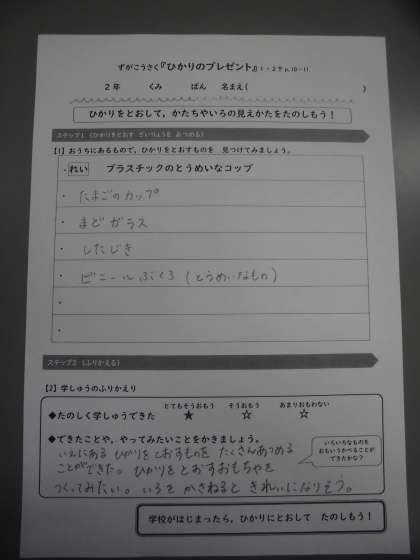 ずがこうさく『ひかりのプレゼント』1・2下 p.10-11
2年　くみ　ばん　名まえ(　)
ひかりをとおして，かたちやいろの見えかたをたのしもう！
ステップ1（ひかりをとおす ざいりょうを あつめる）
【1】おうちにあるもので，ひかりをとおすものを 見つけてみましょう。
・れい プラスチックのとうめいなコップ
・たまごのカップ
・まどガラス
・したじき
・ビニールぶくろ（とうめいなもの）
・
・
ステップ2（ふりかえる）
【2】学しゅうのふりかえり
とてもそうおもう　そうおもう　あまりおもわない
◆たのしく学しゅうできた　★　☆　☆
◆できたことや，やってみたいことをかきましょう。
いろいろなものを
おもいうかべることが
できたかな？
いえにあるひかりをとおすものをたくさんあつめる
ことができた。ひかりをとおすおもちゃを
つくってみたい。いろをかさねるときれいになりそう。
学校がはじまったら，ひかりにとおして たのしもう！